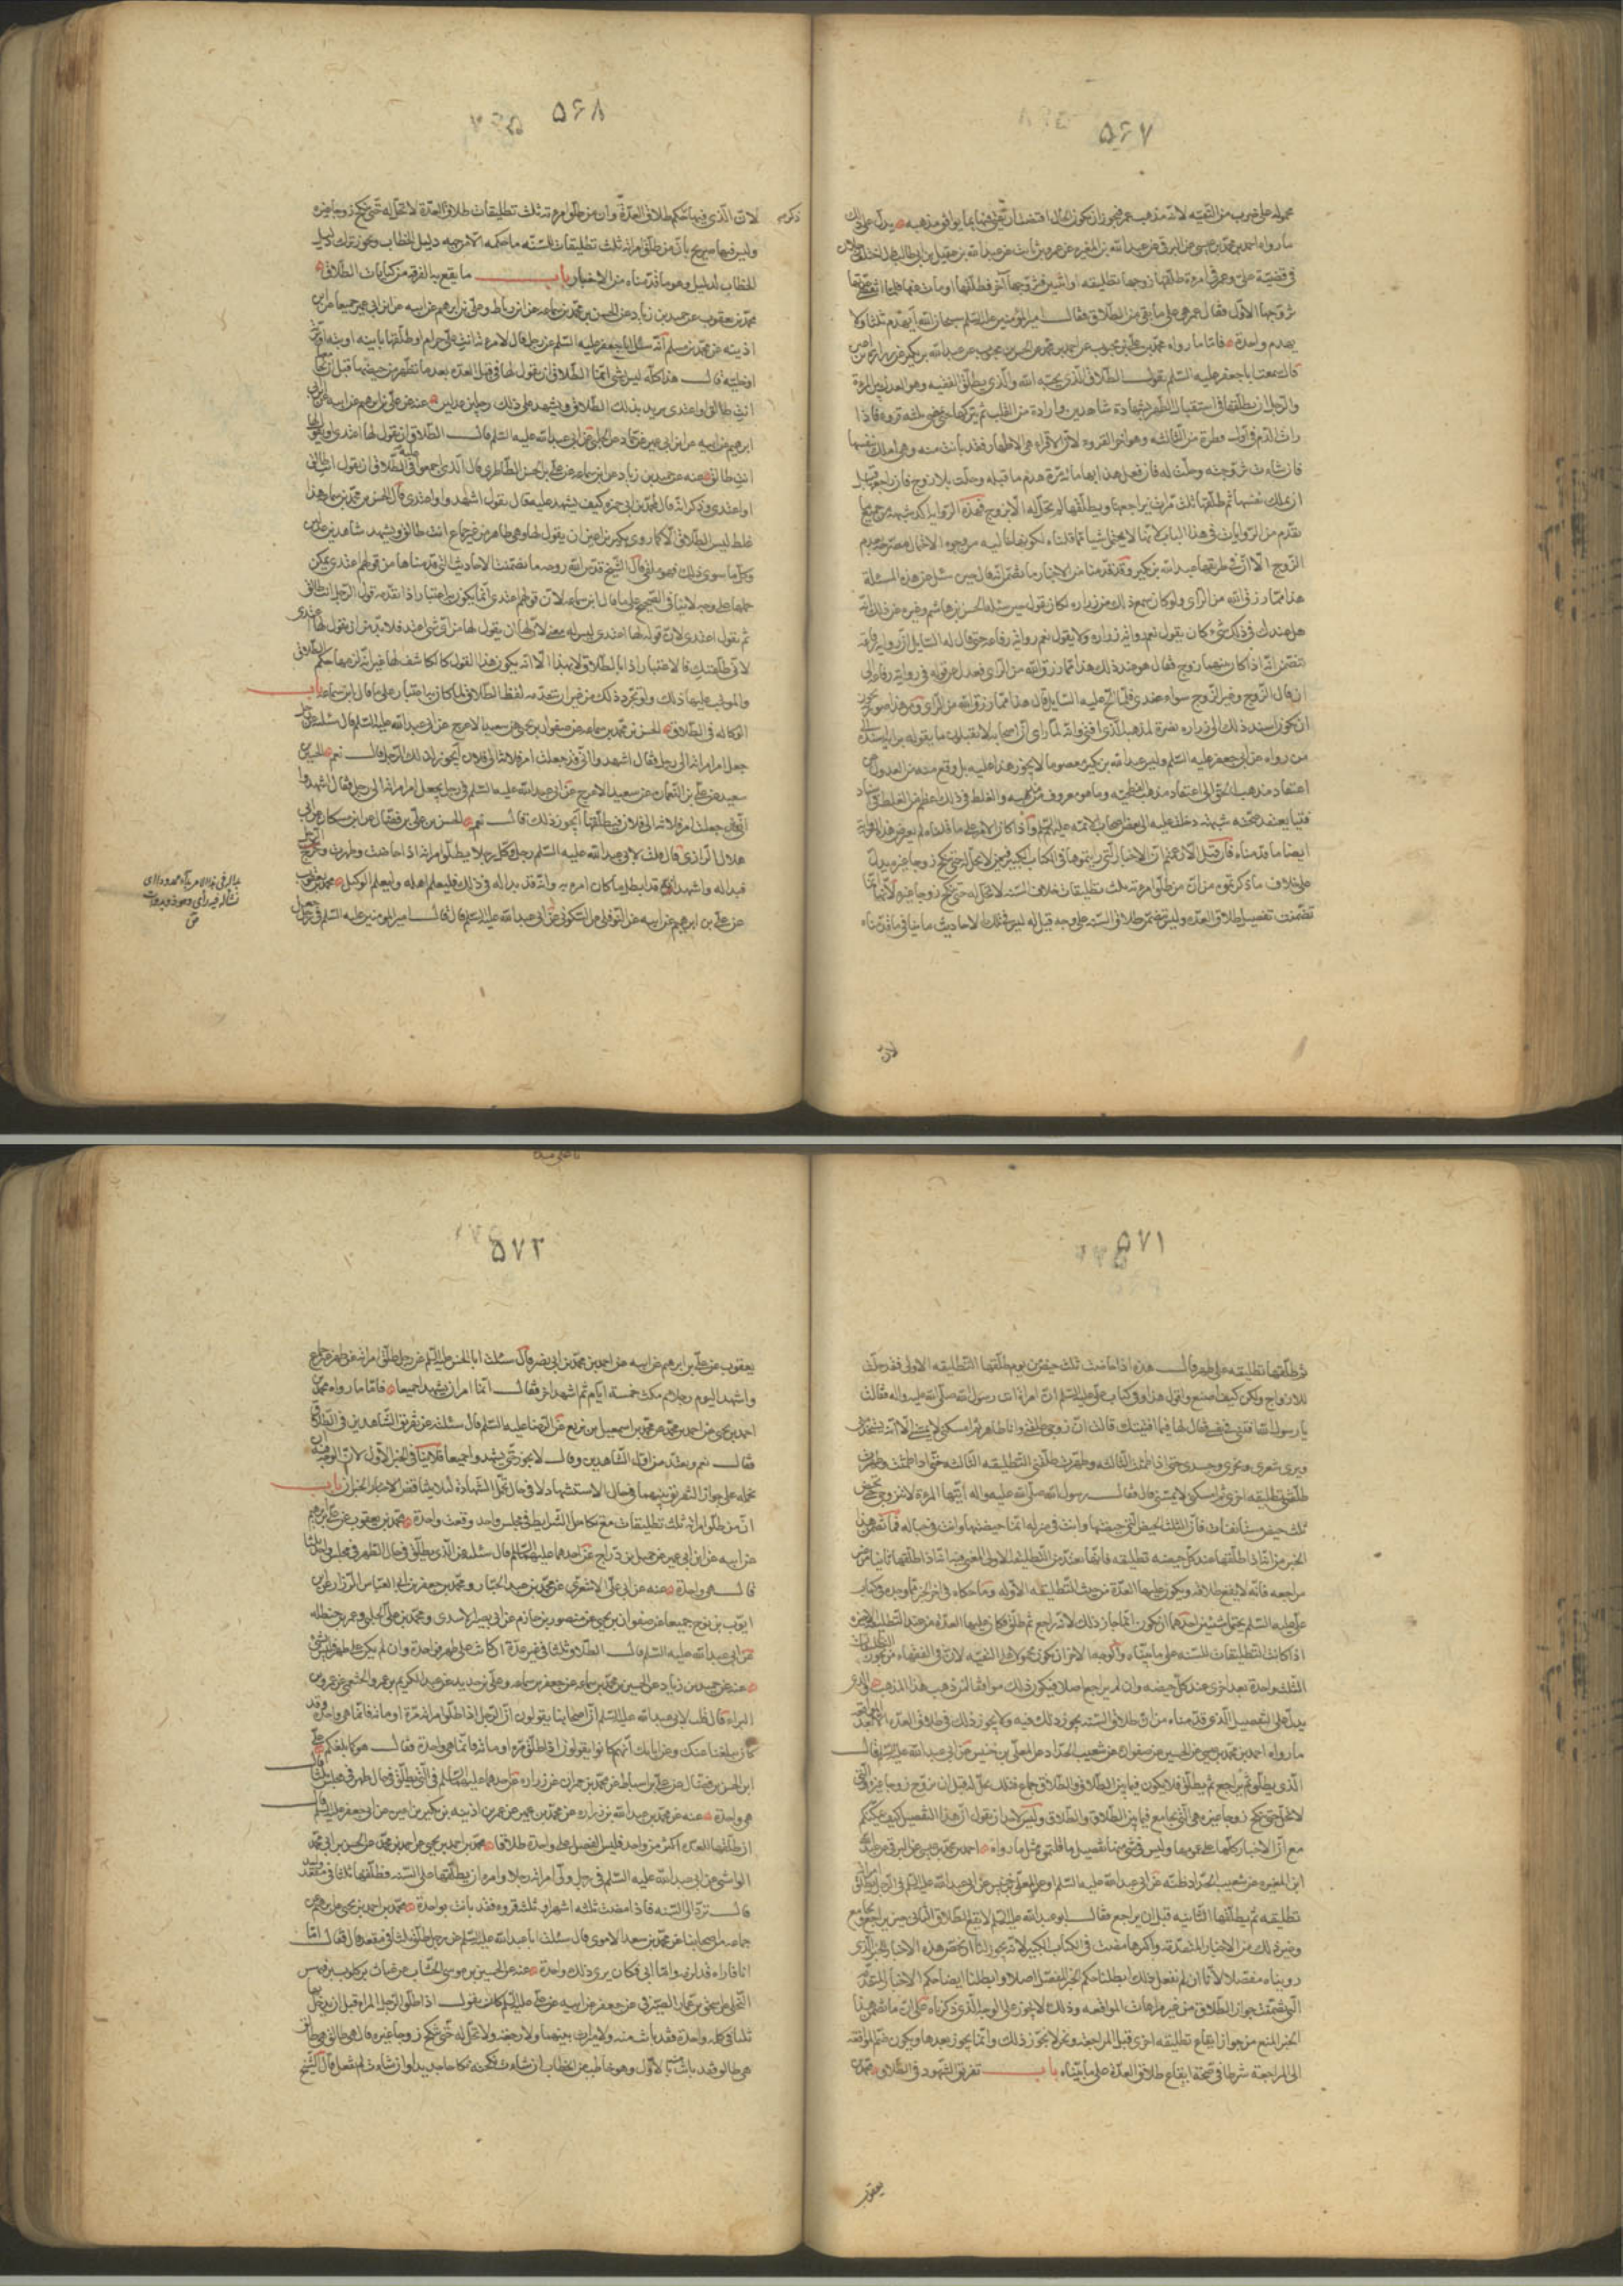 ٥٦٧
محموله على ضرب من التقيه لانه مذهب عمر فيجوز ان يكون الحال اقتضت ان يفتى بما يوافق مذهبه يدل على ذلك
ما رواه احمد بن محمد بن عيسى عن البرقى عن عبد الله بن المغيره عن عمرو بن ثابت عن عبد الله بن عقيل بن ابى طالب قال اختلف رجلان
فى قضية على وعمر فى امرءة طلقها زوجها تطليقه او اثنتين فتزوجها آخر فطلقها او مات عنها فلما انقضت عدتها
تزوجها الاول فقال عمر هى على ما بقى من الطلاق فقال امير المؤمنين عليه السلم سبحان الله ايهدم ثلثا ولا
يهدم واحدة فاما ما رواه محمد بن على بن محبوب عن احمد بن محمد عن الحسن بن محبوب عن عبد الله بن بكير عن زراره بن اعين
قال سمعت ابا جعفر عليه السلم يقول الطلاق الذى يحبه الله والذى يطلق الفقيه وهو العدل بين المرءة
والرجل ان يطلقها فى استقبال الطهر بشهادة شاهدين وارادة من القلب ثم يتركها حتى تمضى ثلثه قروء فاذا
رات الدم فى اول قطرة من الثالثه وهو آخر القروء لان الاقراء هى الاطهار فقد بانت منه وهى املك بنفسها
فان شاءت تزوجته وحلت له فان فعل هذا بها مائة مرة هدم ما قبله وحلت بلا زوج فان راجعها قبل
ان تملك نفسها ثم طلقها ثلث مرات يراجعها ويطلقها لم تحل له الا بزوج فهذه الرواية
تقدم من الروايات فى هذا الباب
الزوج الا ان فى طريقها عبد الله بن بكير وقد قدمنا من الاخبار ما تضمن انه قال حين سئل عن هذه المسئلة
هذا مما رزق الله من الراى ولو كان سمع ذلك من زراره لكان يقول حين سئله الحسين بن هاشم وغيره عن ذلك وانه
هل عندك فى ذلك شىء كان يقول نعم رواية زراره ولا يقول نعم رواية رفاعه حتى قال له السايل ان رواية رفاعة
تتضمن انه اذا كان بينهما زوج فقال هو عند ذلك هذا مما رزق الله من الراى فعدل عن قوله فى رواية رفاعه الى
ان قال الزوج وغير الزوج سواء عندى فلما الح عليه السايل قال هذا مما رزق الله من الراى ومن هذا صورته يجوز
ان يكون اسند ذلك الى زراره نصرة لمذهبه الذى افتى وانه لما راى ان اصحابه لا يقبلون ما يقوله برايه اسنده الى
من رواه عن ابى جعفر عليه السلم وليس عبد الله بن بكير معصوما لا يجوز هذا عليه بل وقع منه من العدول عن
اعتقاد مذهب الحق الى اعتقاد مذهب الفطحيه وما هو معروف من مذهبه والغلط فى ذلك اعظم من الغلط فى اسناد
فتيا يعتقد صحته بشبهة دخلت عليه الى بعض اصحاب الائمة عليهم السلم واذا كان الامر على ما قلناه لم يعترض هذه الرواية
ايضا ما قدمناه فان قيل الاخبار التى رويتموها فى الكتاب الكبير فى من لا تحل له حتى تنكح زوجا غيره يدل
على خلاف ما ذكرتموه من ان من طلق امرءته ثلث تطليقات طلاق السنه لا تحل له حتى تنكح زوجا غيره لانها انما
تضمنت تفصيل طلاق العده وليس تتضمن طلاق السنه على وجه قيل له ليس فى تلك الاحاديث ما ينافى ما قدمناه
لان
٥٦٨
لان الذى فيها حكم طلاق العدة وان من طلق امرءته ثلث تطليقات طلاق العدة لا تحل له حتى تنكح زوجا غيره
وليس فيها تصريح بان من طلق امرءته ثلث تطليقات للسنه ما حكمه الا من جهه دليل الخطاب ويجوز ترك دليل
الخطاب لدليل وهو ما قدمناه من الاخبار باب ما يقع به الفرقه من كنايات الطلاق
محمد بن يعقوب عن حميد بن زياد عن الحسن بن محمد بن سماعه عن ابن رباط وعلى بن ابرهيم عن ابيه عن ابن ابى عمير جميعا عن ابن
اذينه عن محمد بن مسلم انه سئل ابا جعفر عليه السلم عن رجل قال لامرءته انت على حرام او طلقها باينه او بته او برية
او خلية قال هذا كله ليس بشى انما الطلاق ان يقول لها فى قبل العده بعد ما تطهر من حيضها قبل ان يجامعها
انت طالق او اعتدى يريد بذلك الطلاق ويشهد على ذلك رجلين عدلين عنه عن على بن ابرهيم عن ابيه عن ابن ابى
عن الحلبى عن ابى عبد الله عليه السلم قال الطلاق ان يقول لها اعتدى او يقول لها
انت طالق عنه عن حميد بن زياد عن ابن سماعه عن على بن الحسن الطاطرى قال الذى اجمع عليه فى الطلاق ان يقول انت طالق
او اعتدى وذكر انه قال لمحمد بن ابى حمزه كيف يشهد عليه قال يقول اشهدوا اعتدى قال الحسن بن محمد بن سماعه هذا
غلط ليس الطلاق الا كما روى بكير بن اعين ان يقول لها وهى طاهر من غير جماع انت طالق ويشهد شاهدين عدلين
وكل ما سوى ذلك فهو ملغى قال الشيخ قدس الله روحه ما تضمنت الاحاديث التى قدمناها من قولهم اعتدى يمكن
حملها على وجه لا ينافى الصحيح على ما قال ابن سماعه لان قولهم اعتدى انما يكون به اعتبار اذا تقدمه قول الرجل انت طالق
ثم يقول اعتدى لان قوله لها اعتدى ليس له معنى لان لها ان يقول لها من اى شى اعتد فلا بد من ان يقول لها اعتدى
لانى طلقتك فالاعتبار اذا بالطلاق لا بهذا الا انه يكون هذا القول كالكاشف لها عن انه لزمها حكم الطلاق
والموجب عليها ذلك ولو تجرد ذلك من غير ان تقدمه لفظ الطلاق لما كان به اعتبار على ما قال ابن سماعه باب
الوكاله فى الطلاق الحسن بن محمد بن سماعه عن صفوان بن يحيى عن سعيد الاعرج عن ابى عبد الله عليه السلم قال سئلته عن رجل
جعل امر امراته الى رجل فقال اشهدوا انى قد جعلت امر فلانة الى فلان ايجوز ذلك للرجل قال نعم الحسين بن
سعيد عن على بن النعمان عن سعيد الاعرج عن ابى عبد الله عليه السلم فى رجل يجعل امر امراته الى رجل فقال اشهدوا
انى قد جعلت امر فلانه الى فلان فيطلقها ايجوز ذلك قال نعم الحسن بن على بن فضال عن ابن مسكان عن ابى
هلال الرازى قال قلت لابى عبد الله عليه السلم رجل وكل رجلا بطلاق امراته اذا حاضت وطهرت وخرج الرجل
فبدا له واشهد انه قد ابطل ما كان امره به وانه قد بدا له فى ذلك قال فليعلم اهله وليعلم الوكيل محمد بن يعقوب
عن على بن ابرهيم عن ابيه عن النوفلى عن السكونى عن ابى عبد الله عليه السلم قال قال امير المومنين عليه السلم فى رجل جعل
٥٧١
ثم طلقها تطليقه على طهر قال هذه اذا حاضت ثلث حيض من يوم طلقها التطليقه الاولى فقد حلت
للازواج ولكن كيف اصنع او اقول هذا وفى كتاب على عليه السلم ان امراة اتت رسول الله صلى الله عليه واله فقالت
يا رسول الله افتنى فى نفسى فقال لها فيما افتيك قالت ان زوجى طلقنى وانا طاهر ثم امسكنى لا يمسنى الا انه يستخدمنى
ويرى شعرى ونحرى وجسدى حتى اذا طمثت الثالثه وطهرت طلقنى التطليقه الثالثه حتى اذا طمثت وطهرت
طلقنى تطليقه اخرى ثم امسكنى لا يمسنى قال فقال رسول الله صلى الله عليه واله ايتها المرءة لا تتزوجى حتى تحيضى
ثلث حيض مستانفات فان الثلث الحيض التى حيضتها وانت فى منزله انما حيضتها وانت فى حباله
الخبر من انه اذا طلقها عند كل حيضه تطليقه فانها تعتد من التطليقه الاولى المعنى فيه انه اذا طلقها ثانيا من غير
مراجعه فانه لا يقع طلاقه ويكون عليها العدة من حيث التطليقه الاوله وما حكاه فى اخر الخبر مما وجد فى كتاب
على عليه السلم يحتمل شيئين احدهما ان يكون انما جاز ذلك لانه راجع ثم طلق فكان عليها العده من هذه التطليقه الاخيره
اذا كانت التطليقات للسنه على ما بيناه والوجه الاخر ان يكون محمولا على التقيه لان فى الفقهاء من يجوز التطليقات
الثلث واحدة بعد اخرى عند كل حيضه وان لم يراجع اصلا فيكون ذلك موافقا لمن ذهب هذا المذهب والذى
يدل على التفصيل الذى قدمناه من ان طلاق السنه يجوز ذلك فيه ولا يجوز ذلك فى طلاق العده الا بعد المواقعه
ما رواه احمد بن محمد بن عيسى عن الحسين عن صفوان عن شعيب الحداد عن المعلى بن خنيس عن ابى عبد الله عليه السلم قال
الذى يطلق ثم يراجع ثم يطلق فلا يكون فيما بين الطلاق والطلاق جماع فتلك تحل له قبل ان تزوج زوجا غيره والتى
لا تحل حتى تنكح زوجا غيره هى التى يجامع فيما بين الطلاق والطلاق وليس لاحد ان يقول ان هذا التفصيل كيف يمكنكم
مع ان الاخبار كلها على عمومها وليس فى شى منها تفصيل ما قلتموه مثل ما رواه احمد بن محمد بن عيسى عن البرقى عن عبد الله
ابن المغيره عن شعيب الحداد ظنه عن ابى عبد الله عليه السلم او عن المعلى بن خنيس عن ابى عبد الله عليه السلم فى الرجل يطلق امراته
تطليقه ثم يطلقها الثانيه قبل ان يراجع فقال ابو عبد الله عليه السلم لا يقع الطلاق الثانى حتى يراجع ويجامع
وغير ذلك من الاخبار المتقدمة واكثرها مضت فى الكتاب الكبير لانه يجوز لنا ان نخص هذه الاخبار بالخبر الذى
رويناه مفصلا لانا ان لم نفعل ذلك ابطلنا حكم الخبر المفصل اصلا وابطلنا ايضا حكم الاخبار المتقدمة
التى تضمنت جواز الطلاق من غير مراعات المواقعه وذلك لا يجوز على الوجه الذى ذكرناه على ان ما تضمن هذا
الخبر المنع من جواز ايقاع تطليقه اخرى قبل المراجعة ونحن لا نجوز ذلك وانما يجوز بعدها ويكون ضم المواقعه
الى المراجعة شرطا فى صحة ايقاع طلاق العدة على ما بيناه باب تفريق الشهود فى الطلاق محمد بن
يعقوب
٥٧٢
يعقوب عن على بن ابرهيم عن ابيه عن احمد بن محمد بن ابى نصر قال سئلت ابا الحسن عليه السلم عن رجل طلق امراته على طهر من غير جماع
واشهد اليوم رجلا ثم مكث خمسة ايام ثم اشهد اخر فقال انما امر ان يشهدا جميعا فاما ما رواه محمد بن
احمد بن يحيى عن احمد بن محمد عن محمد بن اسمعيل بن بزيع عن الرضا عليه السلم قال سئلته عن تفريق الشاهدين فى الطلاق
فقال نعم وتعتد من اول الشاهدين وقال لا يجوز حتى يشهدوا جميعا فلا ينافى الخبر الاول لان الوجه فيه ان
نحمله على جواز التفريق بينهما فى حال الاستشهاد لا فى حال تحمل الشهادة لئلا يتناقض الاخبار باب
ان من طلق امراته ثلث تطليقات مع تكامل الشرايط فى مجلس واحد وقعت واحدة محمد بن يعقوب عن على بن ابرهيم
عن ابيه عن ابن ابى عمير عن جميل بن دراج عن احدهما عليهما السلم قال سئلته عن الذى يطلق فى حال الطهر فى مجلس واحد ثلثا
قال هى واحدة عنه عن ابى على الاشعرى عن محمد بن عبد الجبار ومحمد بن جعفر ابى العباس الرزاز عن
ايوب بن نوح جميعا عن صفوان بن يحيى عن منصور بن حازم عن ابى بصير الاسدى ومحمد بن على الحلبى وعمر بن حنظله
عن ابى عبد الله عليه السلم قال الطلاق ثلثا فى غير عدة ان كانت على طهر فواحدة وان لم يكن على طهر فليس بشى
عنه عن حميد بن زياد عن الحسن بن محمد بن سماعه عن جعفر بن سماعه وعلى بن خديد عن عبد الكريم بن عمرو الخثعمى عن عمرو بن
البراء قال قلت لابى عبد الله عليه السلم ان اصحابنا يقولون ان الرجل اذا طلق امراته مرة او مائة فانما هى واحدة وقد
كان يبلغنا عنك وعن ابائك انهم كانوا يقولون اذا طلق مرة او مائة فانما هى واحدة فقال هو كما بلغكم على
ابن الحسن بن فضال عن على بن اسباط عن محمد بن حمران عن زراره عن احدهما عليهما السلم فى التى يطلق فى حال طهر فى مجلس ثلثا قال
هى واحدة عنه عن محمد بن عبد الله بن زراره عن محمد بن ابى عمير عن عمر بن اذينه عن بكير بن اعين عن ابى جعفر عليه السلم قال
ان طلقها للعدة اكثر من واحدة فليس الفضل على واحدة طلاقا محمد بن احمد بن يحيى عن احمد بن محمد عن الحسن بن ابى محمد
الواشى عن ابى عبد الله عليه السلم فى رجل ولى امراته رجلا وامره ان يطلقها على السنه فطلقها ثلثا فى مقعد واحد
قال ترد الى السنه فاذا مضت ثلثه اشهر او ثلثه قروء فقد بانت بواحدة محمد بن احمد بن يحيى عن
جماعه من اصحابنا عن محمد بن سعد الاموى قال سئلت ابا عبد الله عليه السلم عن رجل طلق ثلثا فى مقعد قال فقال اما
انا فاراه قد لزمه واما ابى فكان يرى ذلك واحدة عنه عن الحسن بن موسى الخشاب عن غياث بن كلوب بن فيهس
البجلى عن اسحق بن عمار الصيرفى عن جعفر عن ابيه عن على عليه السلم كان يقول اذا طلق الرجل المراة قبل ان يدخل بها
ثلثا فى كلمة واحدة فقد بانت منه ولا ميراث بينهما ولا رجعة ولا تحل له حتى تنكح زوجا غيره وان قال هى طالق هى طالق
هى طالق فقد بانت بالاول وهو خاطب من الخطاب ان شاءت نكحته نكاحا جديدا وان شاءت لم تفعل قال الشيخ